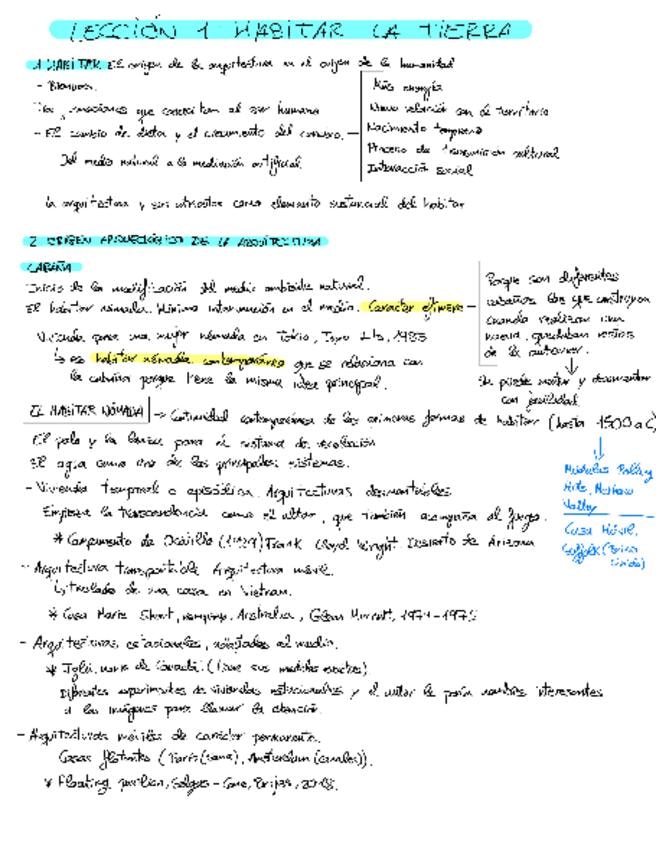 LECCIÓN 1 HABITAR LA TIERRA
1 HABITAR El origen de la arquitectura en el origen de la humanidad
- Bipedismo.
que caracterizan al ser humano
- El cambio de dieta y el crecimiento del cerebro.
Más energía
Nueva relación con el territorio
Nacimiento temprano
Proceso de transmisión cultural
Interacción social
Del medio natural a la mediación artificial
La arquitectura y sus utensilios como elemento sustancial del habitar
2 ORIGEN ARQUEOLÓGICO DE LA ARQUITECTURA
CABAÑA
Inicio de la modificación del medio ambiente natural.
El habitar nómada. Mínima intervención en el medio. Caracter efímero
Porque son diferentes
cabañas las que construyen
cuando realizan una
nueva, quedaban restos
de la anterior.
Se puede montar y desmontar
con facilidad
Vivienda para una mujer nómada en Tokio, Toyo Ito, 1985
↳ es habitar nómada contemporáneo que se relaciona con
la cabaña porque tiene la misma idea principal.
EL HABITAR NÓMADA → Continuidad contemporánea de las primeras formas de habitar (hasta 1500 a C)
El palo y la para el sistema de recolección
El agua como uno de los principales sistemas.
- Vivienda temporal o episódica. Arquitecturas desmontables
Empieza la transcendencia como el altar, que también acompaña al fuego.
* Campamento de Ocatillo (1929) Frank Lloyd Wright. Desierto de Arizona
Valley
Casa Móvil.
- Arquitectura transportable Arquitectura móvil.
↳ traslado de una casa en Vietnam.
* Casa Marie Short, Kempsey, Australia, Glenn Murcutt, 1974-1975
- Arquitecturas estacionales, adaptadas al medio.
* Iglú, norte de Canadá. (tiene sus medidas exactas)
Diferentes experimentos de viviendas estacionales y el autor le ponía nombres interesantes
a las imágenes para llamar la atención.
- Arquitecturas móviles de carácter permanente.
Casas flotantes (París (sena), Amsterdam (canales)).
* Floating pavilion, Selgas-Cano, Brujas, 2018.